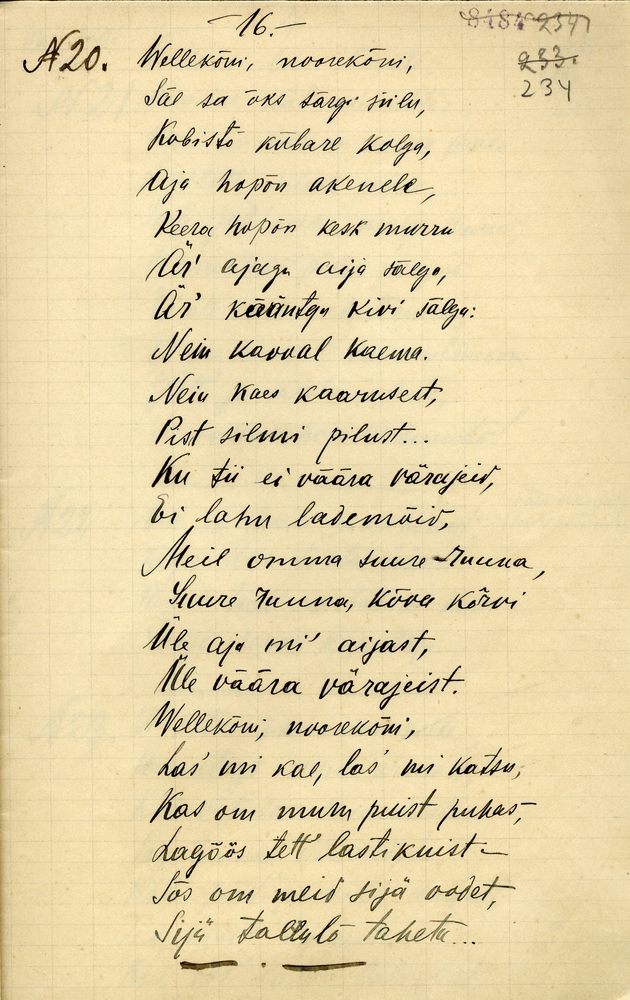 —16.—
8484 237
233.
234
№20. Wellekõni, noorekõni,
Säe sa õks särgi siilu,
Kobistõ kübare kolga,
Aja hopõn akenele,
Keera hopõn kesk murru
Är' ajagu aija salgo,
Är' kääntgu kivi salgu:
Nein kavval kaema.
Nein kaes kaarusest,
Pist silmi pilust...
Ku tii ei väära värajeid,
Ei lahu lademõid,
Meil omma suure-ruuna,
Suure ruuna, kõva kõrvi
Üle aja mi' aijast,
Üle väära värajeist.
Wellekõni, noorekõni,
Las' mi kae, las' mi katsu,
Kas om muru puist puhas,—
Lagõõs tett' lastikuist—
Sõs om meid sijä oodet,
Sijä taheta...